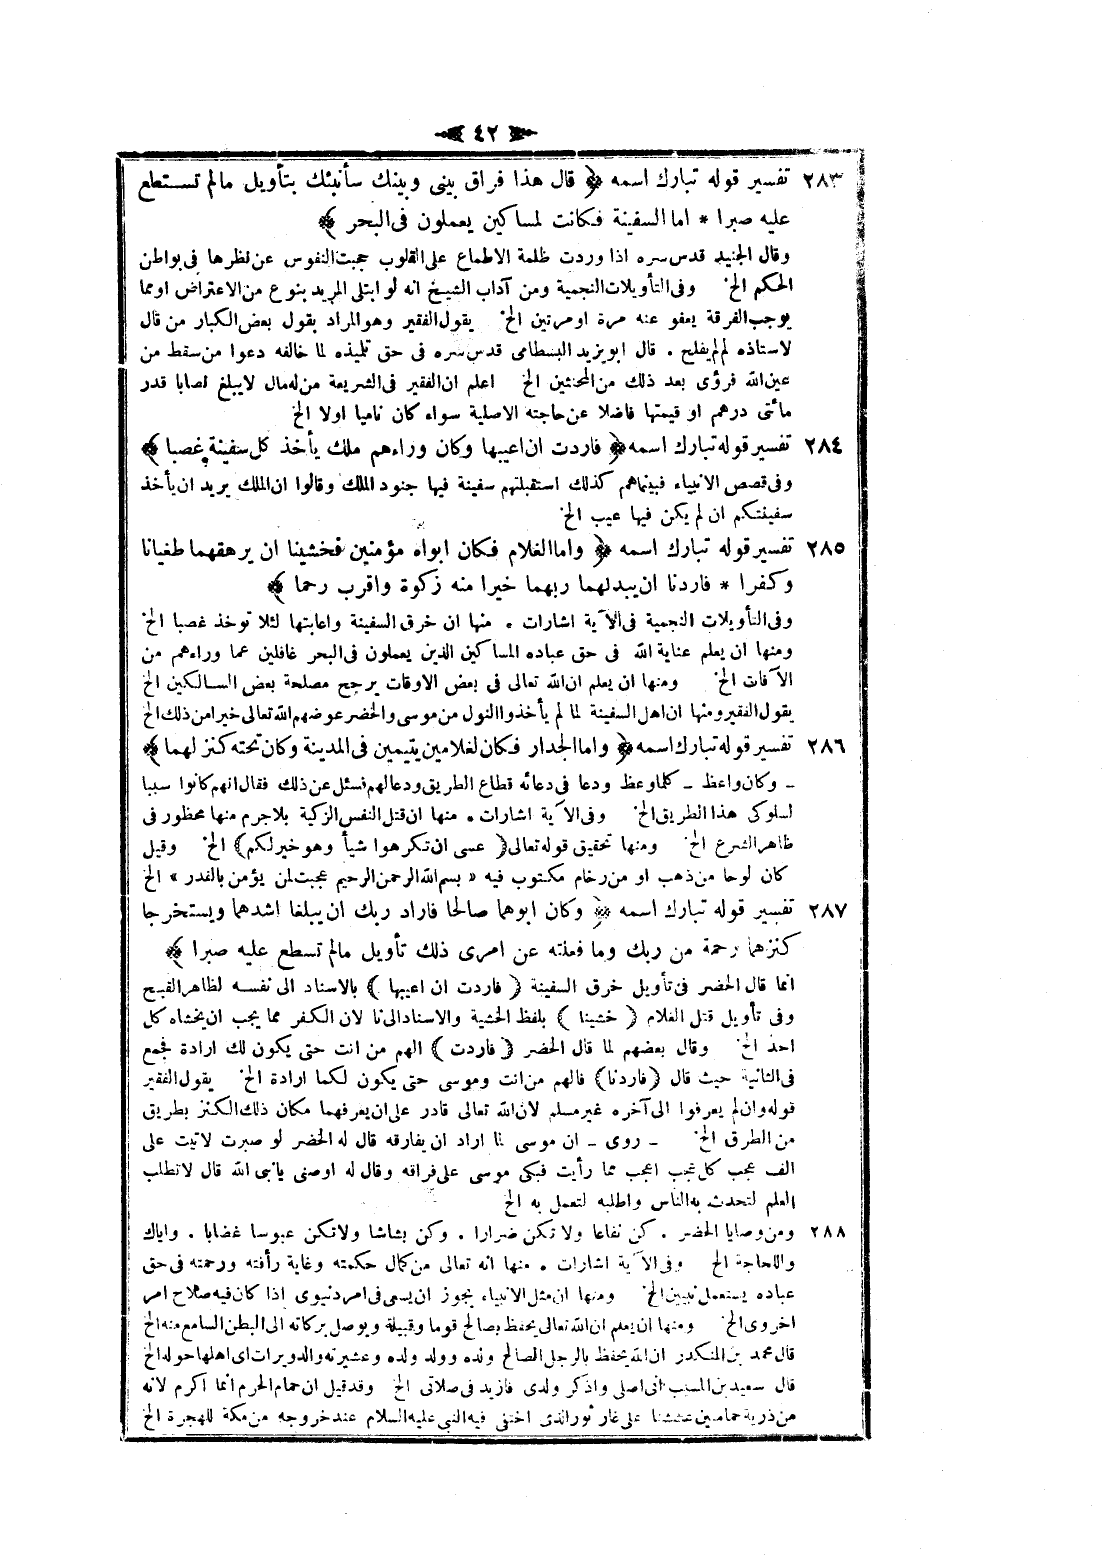 ٤٢
٢٨٣ تفسير قوله تبارك اسمه ﴿ قال هذا فراق بينى وبينك سأنبئك بتأويل مالم تستطع
عليه صبرا * اما السفينة فكانت لمساكين يعملون فى البحر ﴾
وقال الجنيد قدس سره اذا وردت ظلمة الاطماع على القلوب حجبت النفوس عن نظرها فى بواطن
الحكم الخ وفى التأويلات النجمية ومن آداب الشيخ انه لو ابتلى المريد بنوع من الاعتراض او مما
يوجب الفرقة يعفو عنه مرة او مرتين الخ يقول الفقير وهو المراد بقول بعض الكبار من قال
لاستاذه لم لم يفلح . قال ابو يزيد البسطامى قدس سره فى حق تلميذه لما خالفه دعوا من سقط من
عين الله فرؤى بعد ذلك من المخنثين الخ اعلم ان الفقير فى الشريعة من له مال لايبلغ نصابا قدر
مأتى درهم او قيمتها فاضلا عن حاجته الاصلية سواء كان ناميا اولا الخ
٢٨٤ تفسير قوله تبارك اسمه ﴿ فاردت ان اعيبها وكان وراءهم ملك يأخذ كل سفينة غصبا ﴾
وفى قصص الانبياء فبينماهم كذلك استقبلتهم سفينة فيها جنود الملك وقالوا ان الملك يريد ان يأخذ
سفينتكم ان لم يكن فيها عيب الخ
٢٨٥ تفسير قوله تبارك اسمه ﴿ واما الغلام فكان ابواه مؤمنين فخشينا ان يرهقهما طغيانا
وكفرا * فاردنا ان يبدلهما ربهما خيرا منه زكوة واقرب رحما ﴾
وفى التأويلات النجمية فى الآية اشارات . منها ان خرق السفينة واعابتها لئلا توخذ غصبا الخ
ومنها ان يعلم عناية الله فى حق عباده المساكين الذين يعملون فى البحر غافلين عما وراءهم من
الآفات الخ ومنها ان يعلم ان الله تعالى فى بعض الاوقات يرجح مصلحة بعض السالكين الخ
يقول الفقير ومنها ان اهل السفينة لما لم يأخذوا النول من موسى والخضر عوضهم الله تعالى خيرا من ذلك الخ
٢٨٦ تفسير قوله تبارك اسمه ﴿ واما الجدار فكان لغلامين يتيمين فى المدينة وكان تحته كنز لهما ﴾
ـ وكان واعظ ـ كلما وعظ ودعا فى دعائه قطاع الطريق ودعا لهم فسئل عن ذلك فقال انهم كانوا سببا
لسلوكى هذا الطريق الخ وفى الآية اشارات . منها ان قتل النفس الزكية بلاجرم منها محظور فى
ظاهر الشرع الخ ومنها تحقيق قوله تعالى ( عسى ان تكرهوا شيأ وهو خير لكم ) الخ وقيل
كان لوحا من ذهب او من رخام مكتوب فيه « بسم الله الرحمن الرحيم عجبت لمن يؤمن بالقدر » الخ
٢٨٧ تفسير قوله تبارك اسمه ﴿ وكان ابوهما صالحا فاراد ربك ان يبلغا اشدهما ويستخرجا
كنزهما رحمة من ربك وما فعلته عن امرى ذلك تأويل مالم تسطع عليه صبرا ﴾
انما قال الخضر فى تأويل خرق السفينة ( فاردت ان اعيبها ) بالاسناد الى نفسه لظاهر القبح
وفى تأويل قتل الغلام ( خشينا ) بلفظ الخشية والاسناد الى نا لان الكفر مما يجب ان يخشاه كل
احد الخ وقال بعضهم لما قال الخضر ( فاردت ) الهم من انت حتى يكون لك ارادة فجمع
فى الثانية حيث قال ( فاردنا ) فالهم من انت وموسى حتى يكون لكما ارادة الخ يقول الفقير
قوله وان لم يعرفوا الى آخره غير مسلم لان الله تعالى قادر على ان يعرفهما مكان ذلك الكنز بطريق
من الطرق الخ ـ روى ـ ان موسى لما اراد ان يفارقه قال له الخضر لو صبرت لاتيت على
الف عجب كل عجب اعجب مما رأيت فبكى موسى على فراقه وقال له اوصنى يانبى الله قال لاتطلب
العلم لتحدث به الناس واطلبه لتعمل به الخ
٢٨٨ ومن وصايا الخضر . كن نفاعا ولا تكن ضرارا . وكن بشاشا ولاتكن عبوسا غضابا . واياك
واللحاجة الخ وفى الآية اشارات . منها انه تعالى من كمال حكمته وغاية رأفته ورحمته فى حق
عباده يستعمل نبيين الخ ومنها ان مثل الانبياء يجوز ان يسعى فى امر دنيوى اذا كان فيه صلاح امر
اخروى الخ ومنها ان يعلم ان الله تعالى يحفظ بصالح قوما وقبيلة ويوصل بركاته الى البطن السابع منه الخ
قال محمد بن المنكدر ان الله يحفظ بالرجل الصالح ولده وولد ولده وعشيرته والدويرات اى اهلها حوله الخ
قال سعيد بن المسيب انى اصلى واذكر ولدى فازيد فى صلاتى الخ وقد قيل ان حمام الحرم انما اكرم لانه
من ذرية حمامتين عششتا على غار ثور الذى اختفى فيه النبى عليه السلام عند خروجه من مكة للهجرة الخ